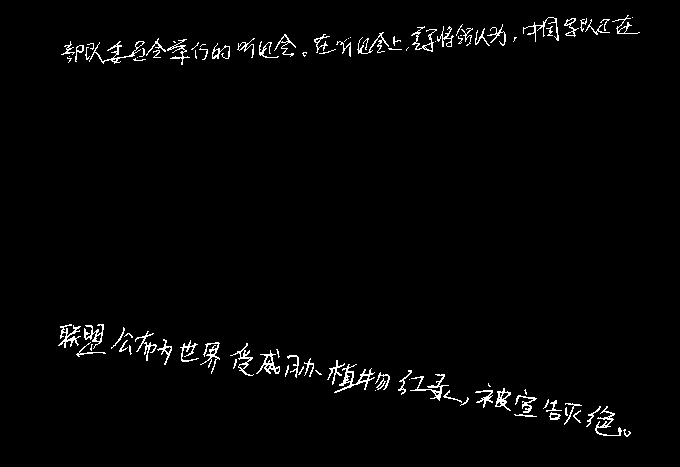 部队委员会举行的听证会。在听证会上,高将领认为,中国军队正在
联盟公布为世界受威胁植物红录,被宣告灭绝。